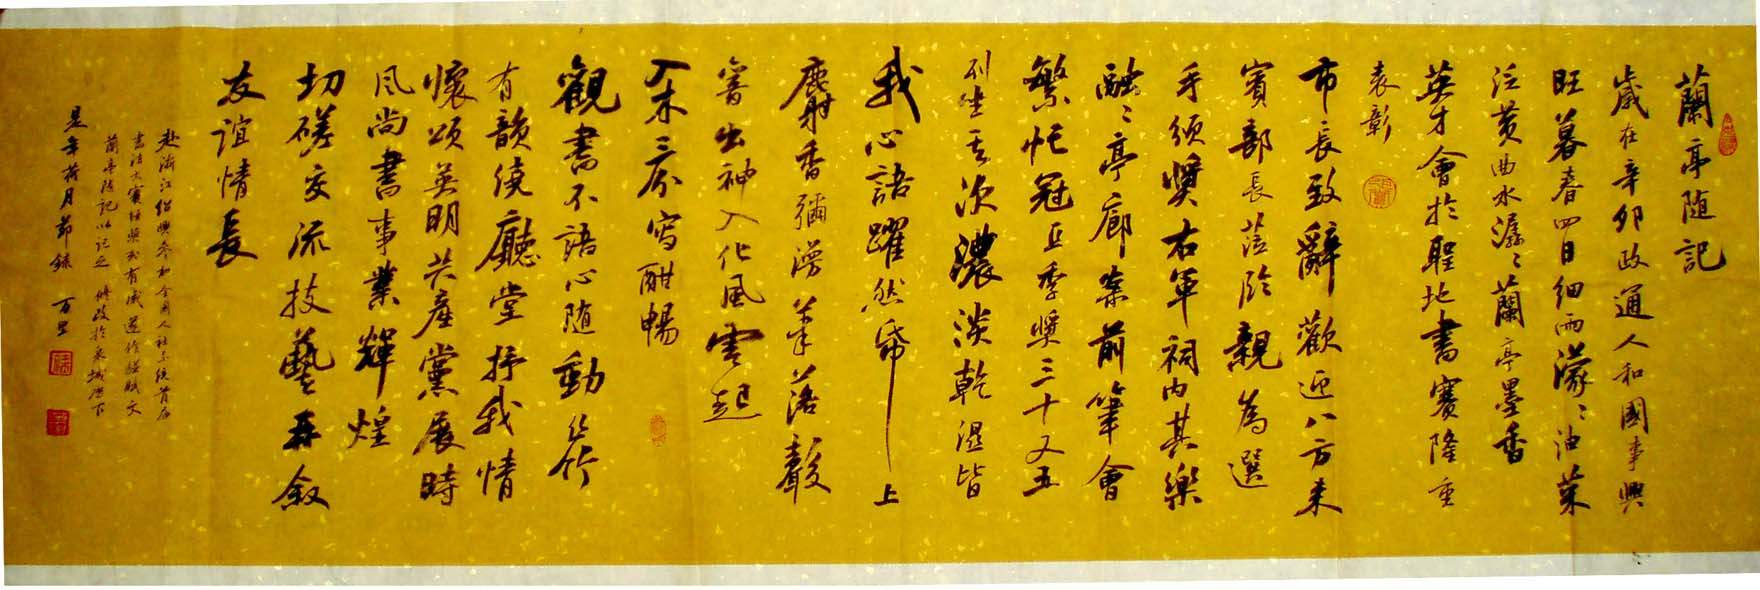 蘭亭随記
歲在辛卯政通人和國事興
旺暮春四日细雨濛濛油菜
泛黄曲水潺潺蘭亭墨香
英才會於聖地書賽隆重
表彰
市長致辭歡迎八方来
賓部長莅臨親為選
手颁獎右軍祠内其樂
融融亭廊案前筆會
繁忙冠亚季獎三十又五
列坐其次濃淡乾湿皆
我心語躍然帋上
麝香彌漫筆落聲
響出神入化風雲起
入木三分寫酣暢
觀書不語心随動絲竹
有韻繞廳堂抒我情
懷颂英明共産黨展時
風尚書事業輝煌
切磋交流技藝再叙
友誼情長
赴浙江绍興参加全國人社系统首届
書法大賽頒獎到有感遂作
蘭亭随記以記之修改於泉城歷下
是年荷月節録